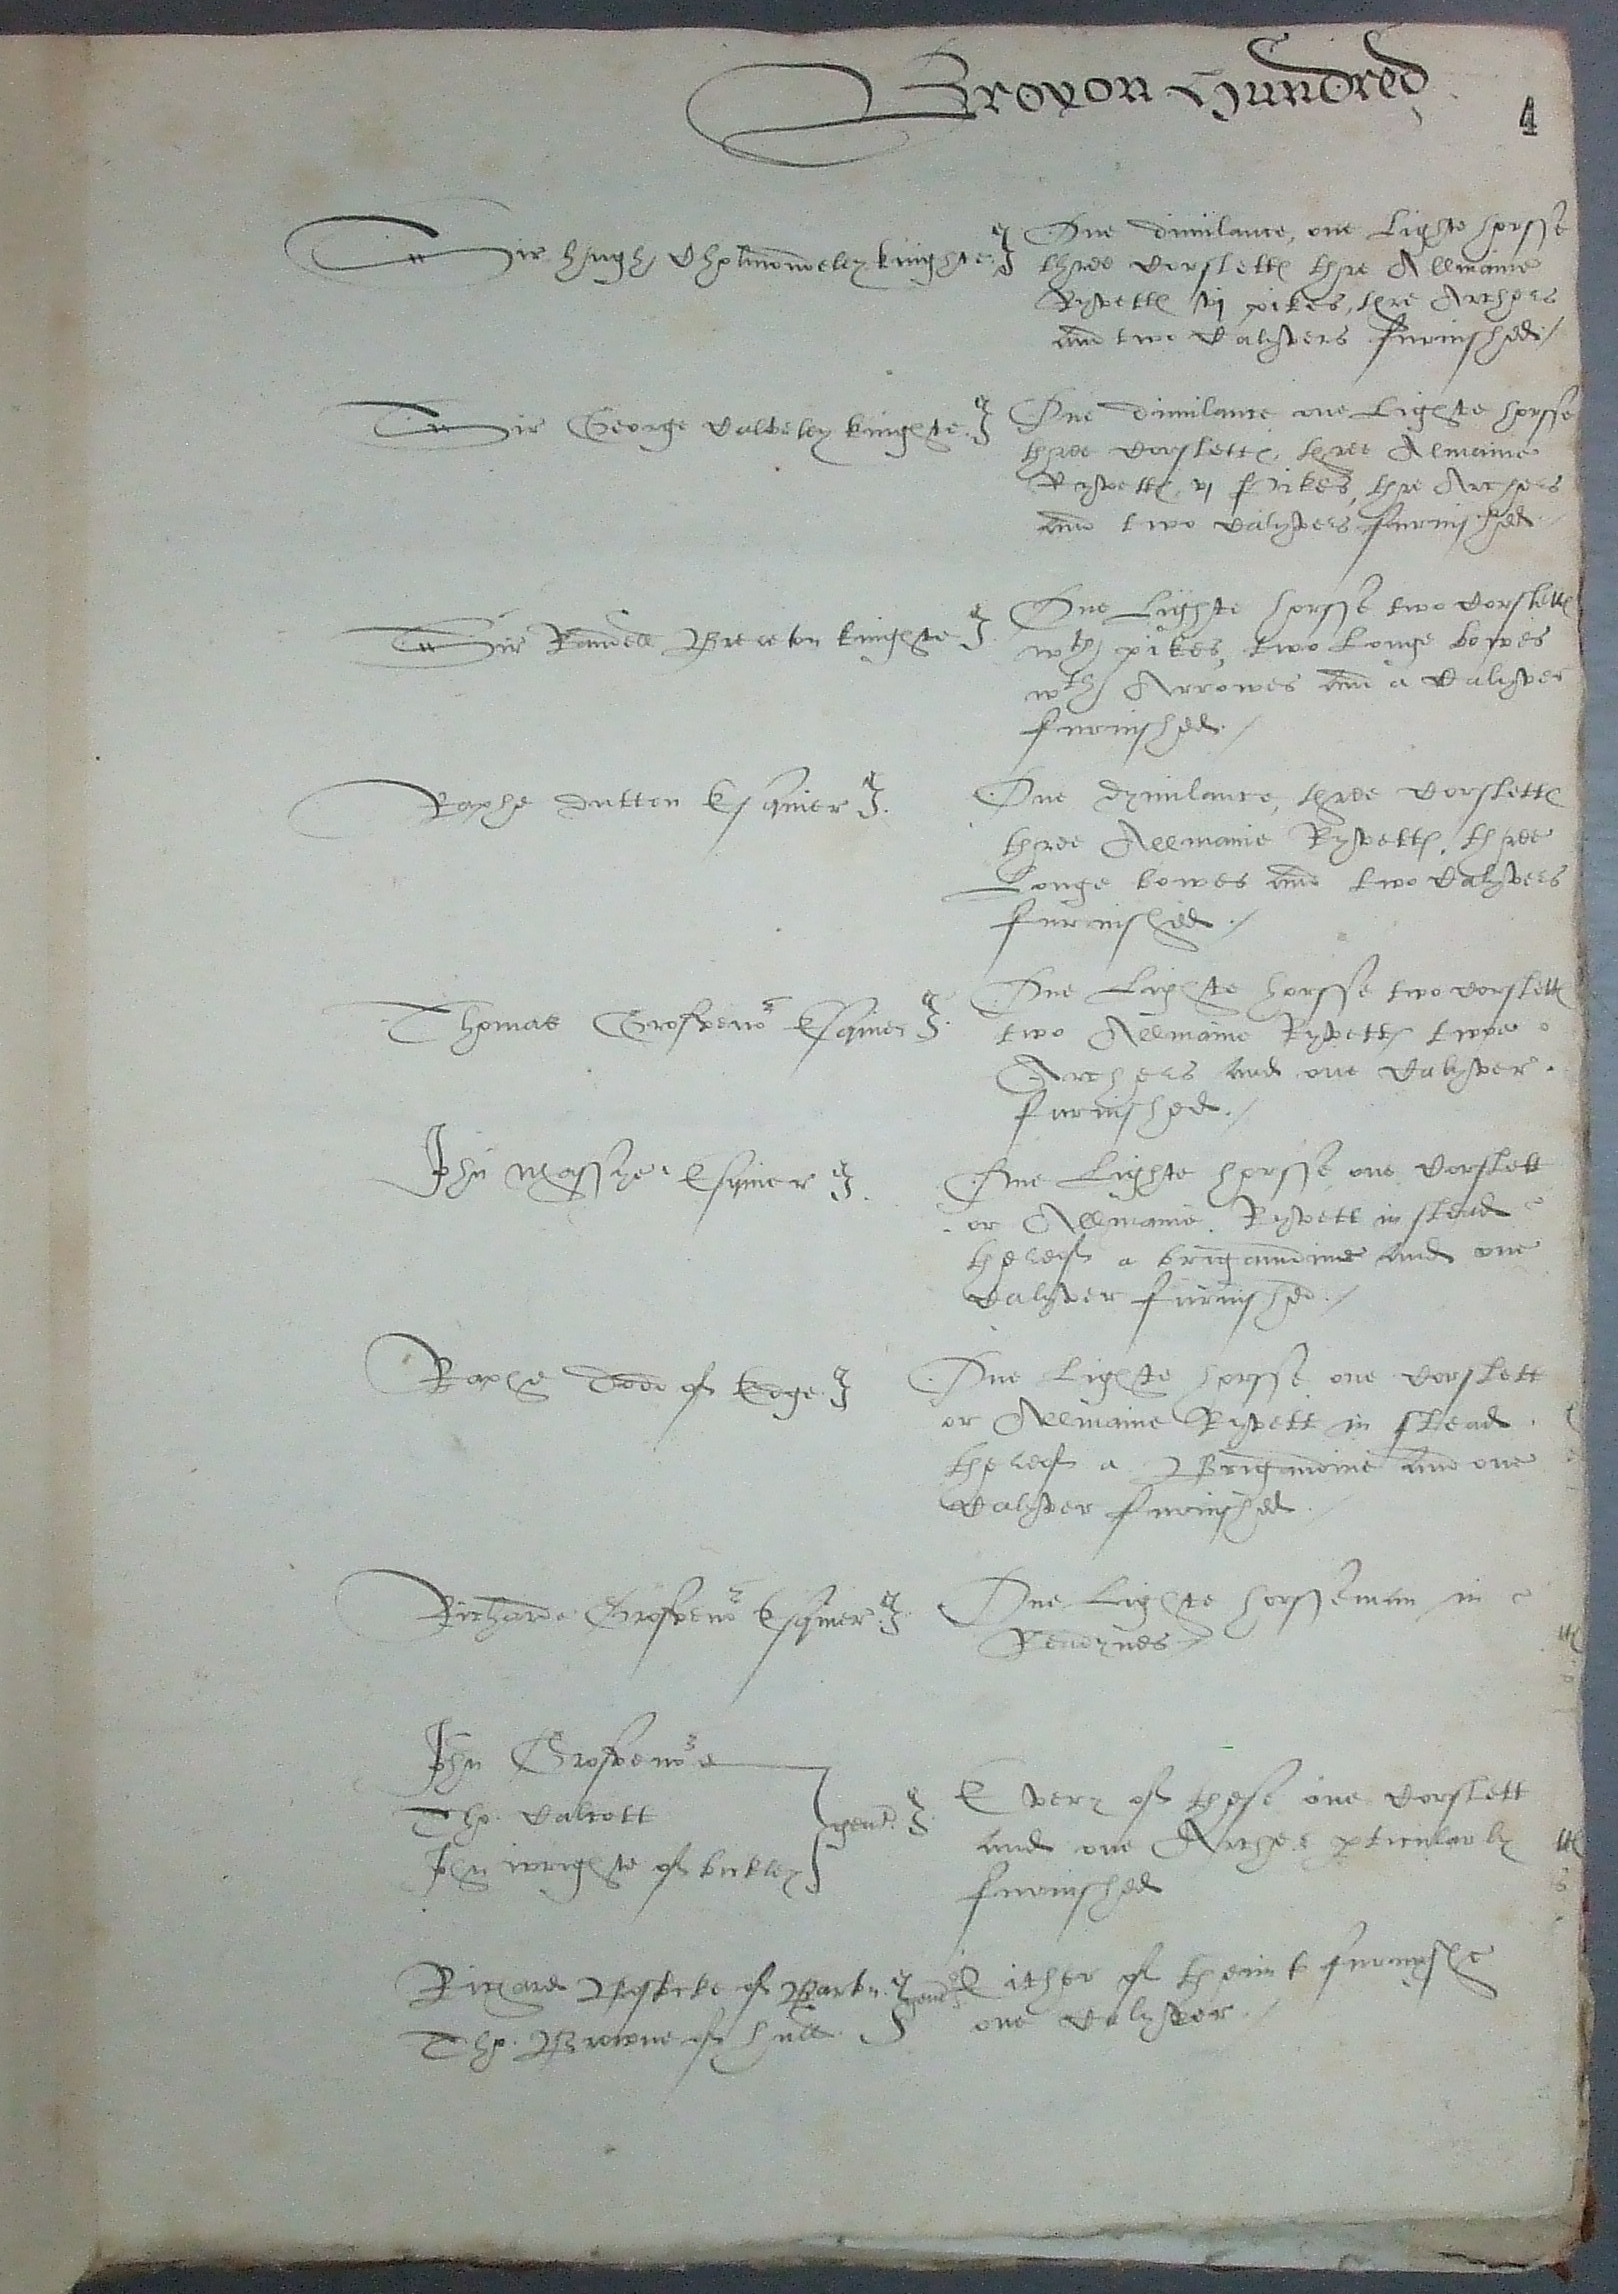 Broxon Hundred
4
Sir Hugh Cholmondeley knighte
One dimilance, one Lighte horsse
three Corslettes thre Allmaine
Ryvettes vj pikes, thre Archers
and two Calyvers furnished
Sir George Calveley knighte
One dimilance one Lighte horsse
three Corslettes, three Almaine
Ryvettes vj pikes, thre Archers
and two Calyvers furnished
Sir Randell Brereton knighte
One Lighte horsse two Corslettes
wth pikes, two Longe bowes
wth Arrowes and a Calyver
furnished
Raphe Dutton Esquier
One dymilance, three Corslettes
three Allmaine Ryvettes, three
Longe bowes and two Calyvers
furnished
Thomas Grosvenor Esquier
One Lighte horsse two Corslettes
two Allmaine Ryvettes twoe
Archers and one Calyver
furnished
John Massye Esquier
One Lighte horsse, one Corslett
or Allmaine Ryvett in stead
thereof a brigaundine and one
Calyver furnished
Raphe Dod of Edge
One Lighte horsse one Corslett
or Allmaine Ryvett in stead
thereof a Brigandine and one
Calyver furnished
Richarde Grosvenor Esquier
One Lighte horsseman in
Readynes
John Grosvenor
Tho. Calcott
John wrighte of bickley
gent.
Every of these one Corslett
and one Archer pticularly
furnished
Richard of Barton
Tho. Browne of Hull
gent
Either of theim to furnyshe
one Calyver